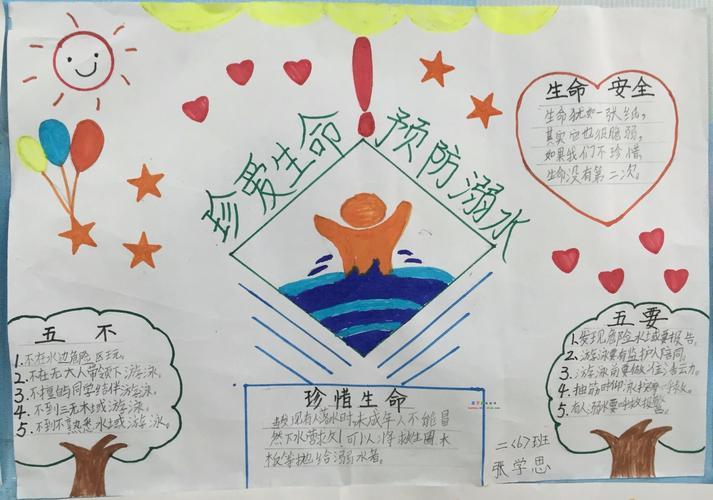 珍爱生命 预防溺水
生命 安全
生命犹如一张纸，
其实它也很脆弱，
如果我们不珍惜，
生命没有第二次。
五 不
1.不在水边危险区玩。
2.不在无大人带领下游泳。
3.不擅自与同学结伴游泳。
4.不到三无水域游泳。
5.不到不熟悉水域游泳。
五 要
1.发现危险水域要报告。
2.游泳要有监护人陪同。
3.游泳前要做
4.抽筋时
5.有人溺水要呼救报警。
珍惜生命
发现有人落水时未成年人不能冒
然下水营救 可以将救生圈 木
板等抛给溺水者。
二〈6〉班
张学思